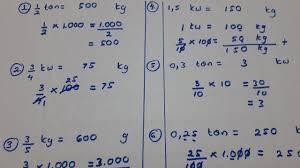 ① 1/2 ton = 500 kg
1/2 x 1.000 = 1.000/2
= 500
② 3/4 kw = 75 kg
3/4 x 100 = 75
25
1
③ 3/5 kg = 600 g
3 x 1.000 = 3.000
④ 1,5 kw = 150 kg
1 kw = 100 kg
5/10 x 100 = 50 kg +
150 kg
⑤ 0,3 ton = 3 kg
3/10 x 10 = 30/10
= 3
⑥ 0,25 ton = 250 k
25 x 1.000 = 250
100